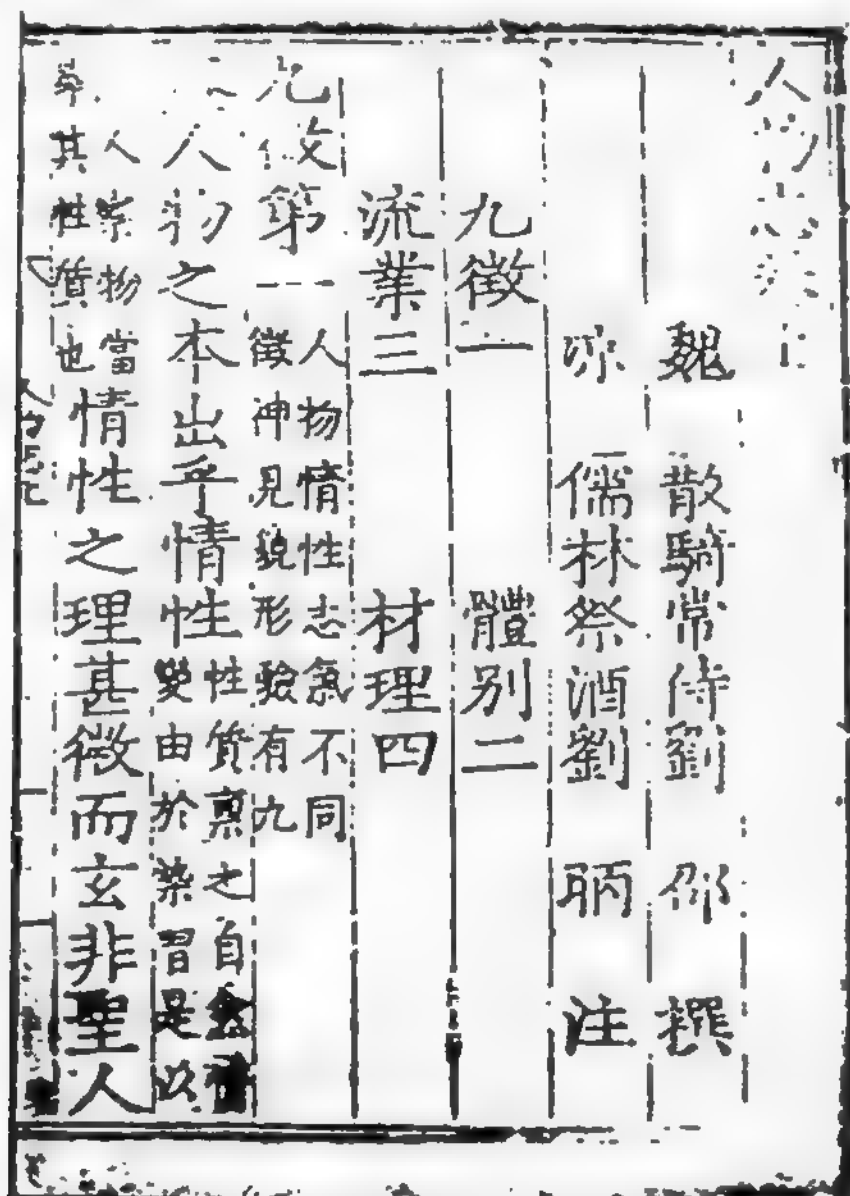 人物志卷上
魏 散騎常侍劉 邵 撰
涼 儒林祭酒劉 昞 注
九徵一 體別二
流業三 材理四
九徵第一 人物情性志氣不同
徵神見貌形驗有九
蓋人物之本出乎情性 性質稟之自然情
變由於染習是以
人察物當
尋其性質也 情性之理甚微而玄非聖人